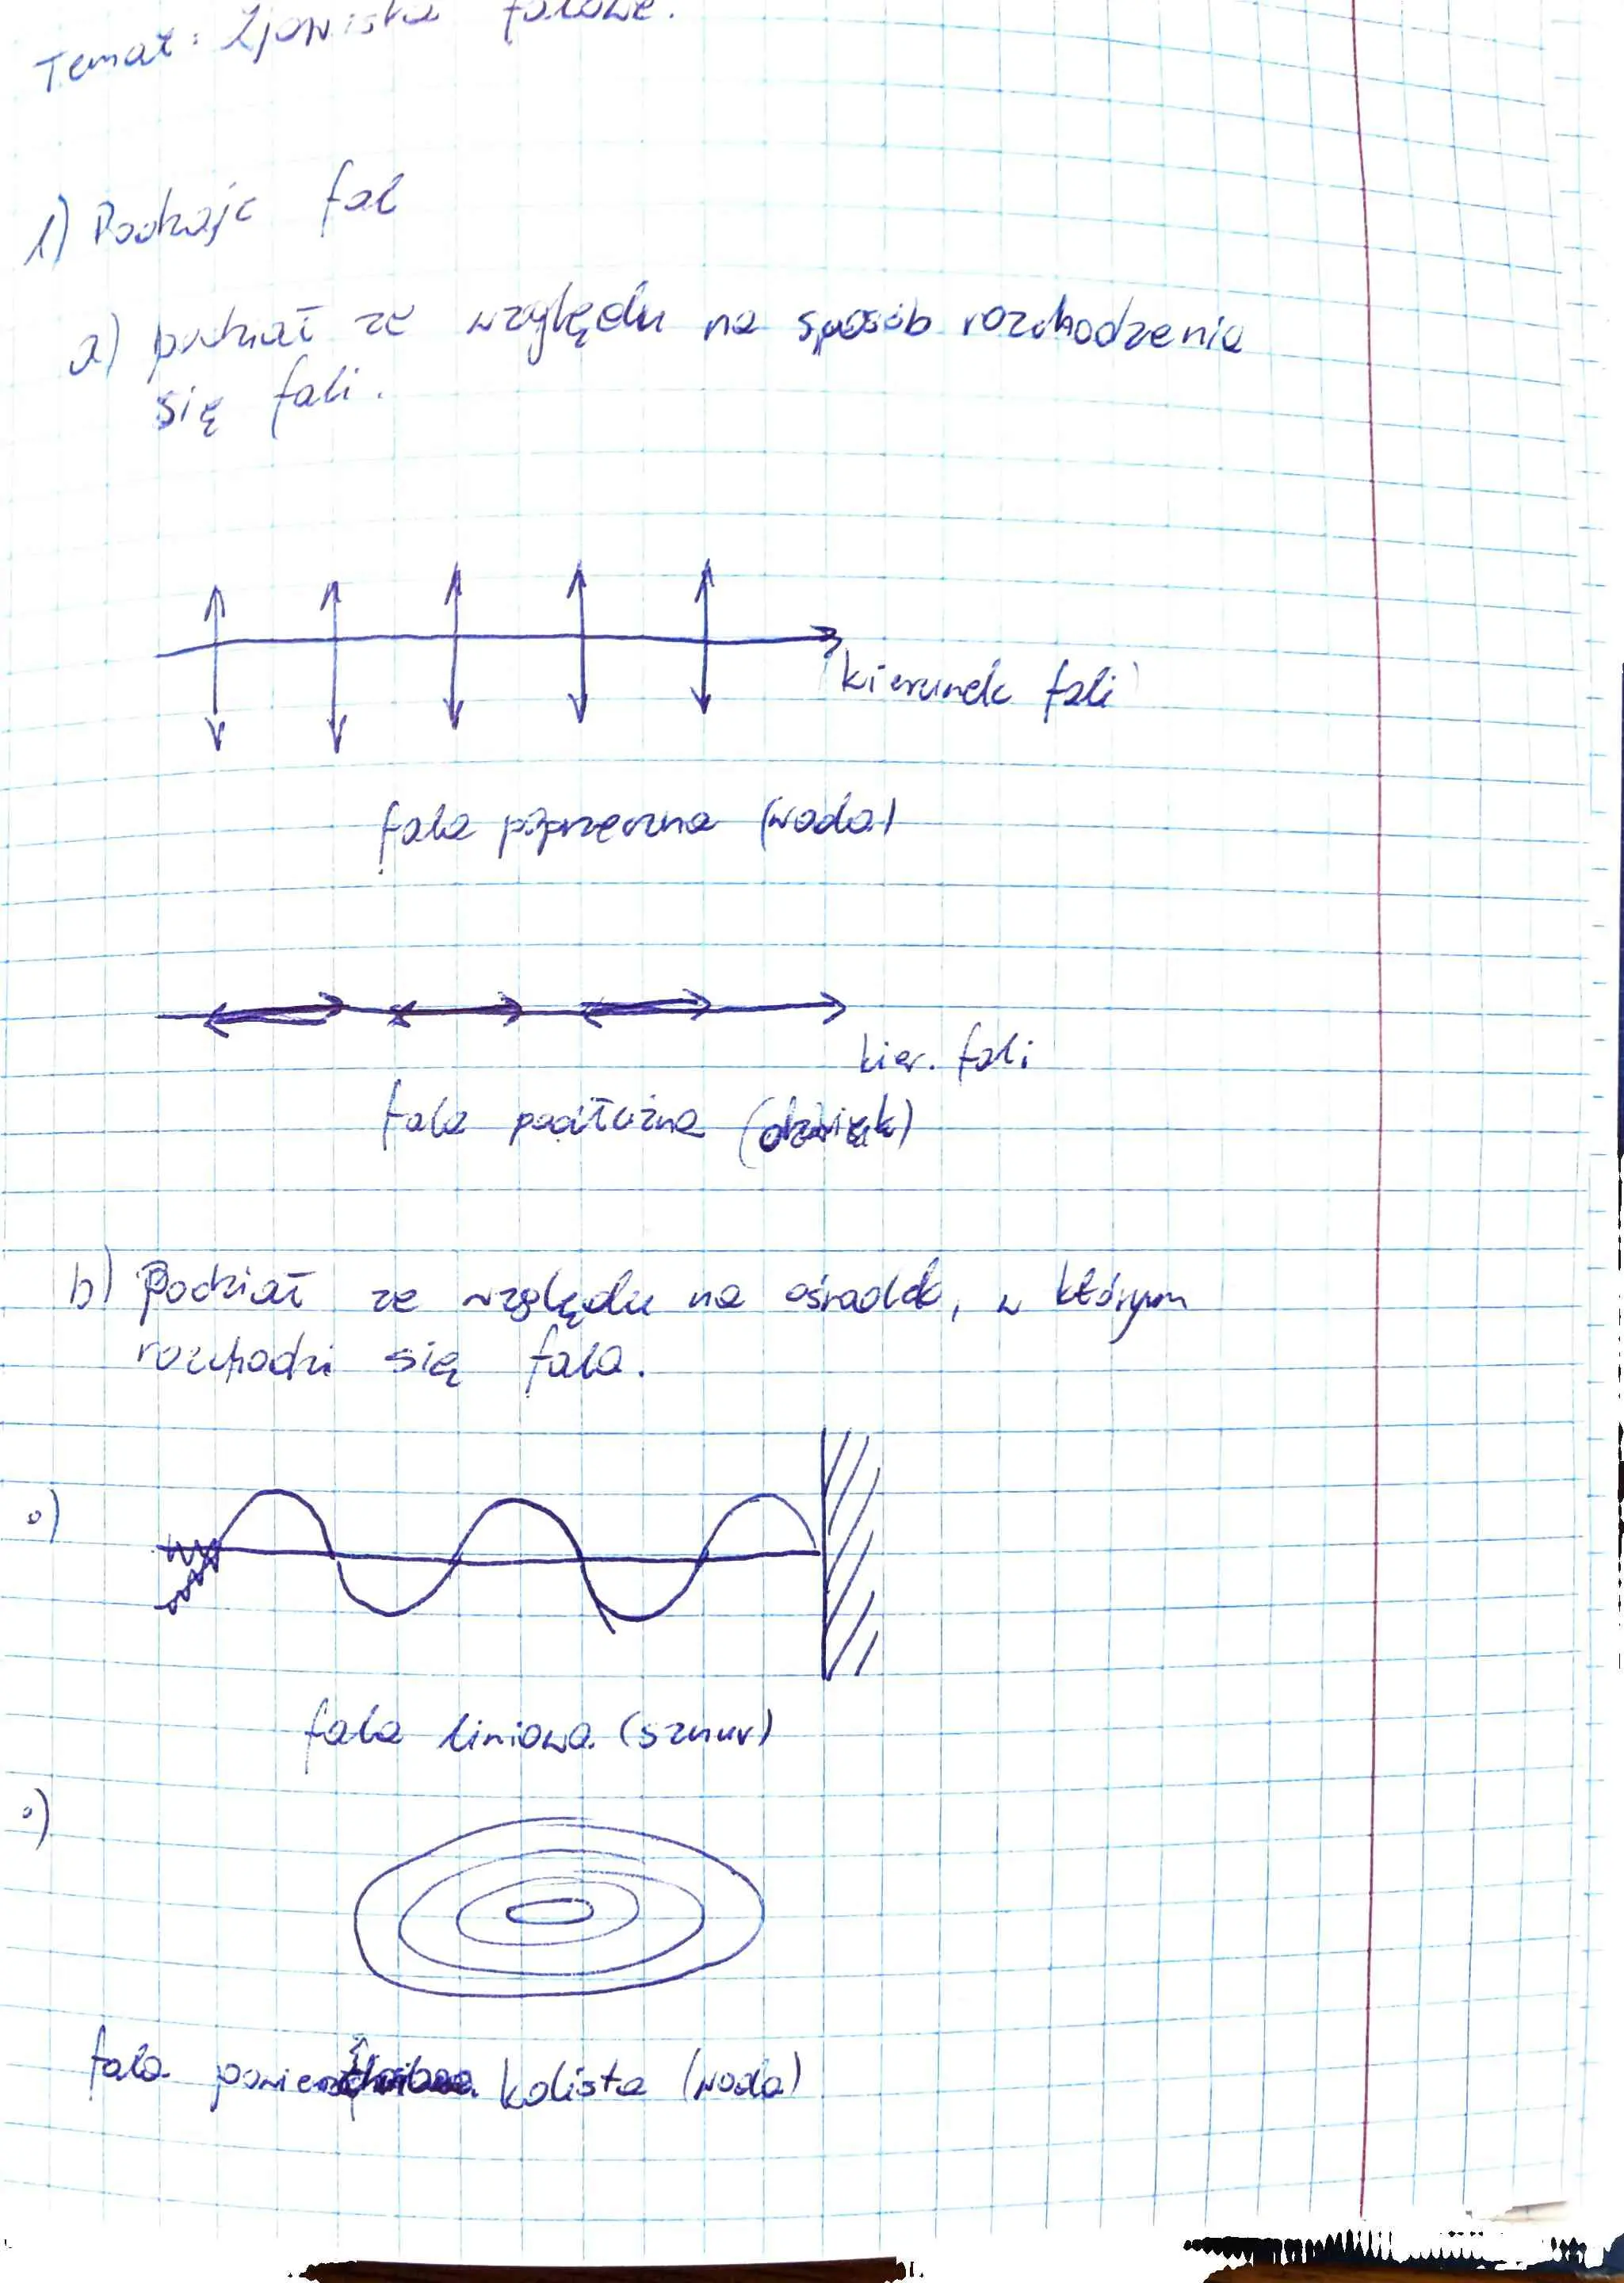 Temat: Zjawiska falowe.
1) Rodzaje fal
a) podział ze względu na sposób rozchodzenia
się fali.
kierunek fali
fala poprzeczna (woda)
kier. fali
fala podłużna (dźwięk)
b) Podział ze względu na ośrodek, w którym
rozchodzi się fala.
°)
fala liniowa (sznur)
°)
fala kolista (woda)